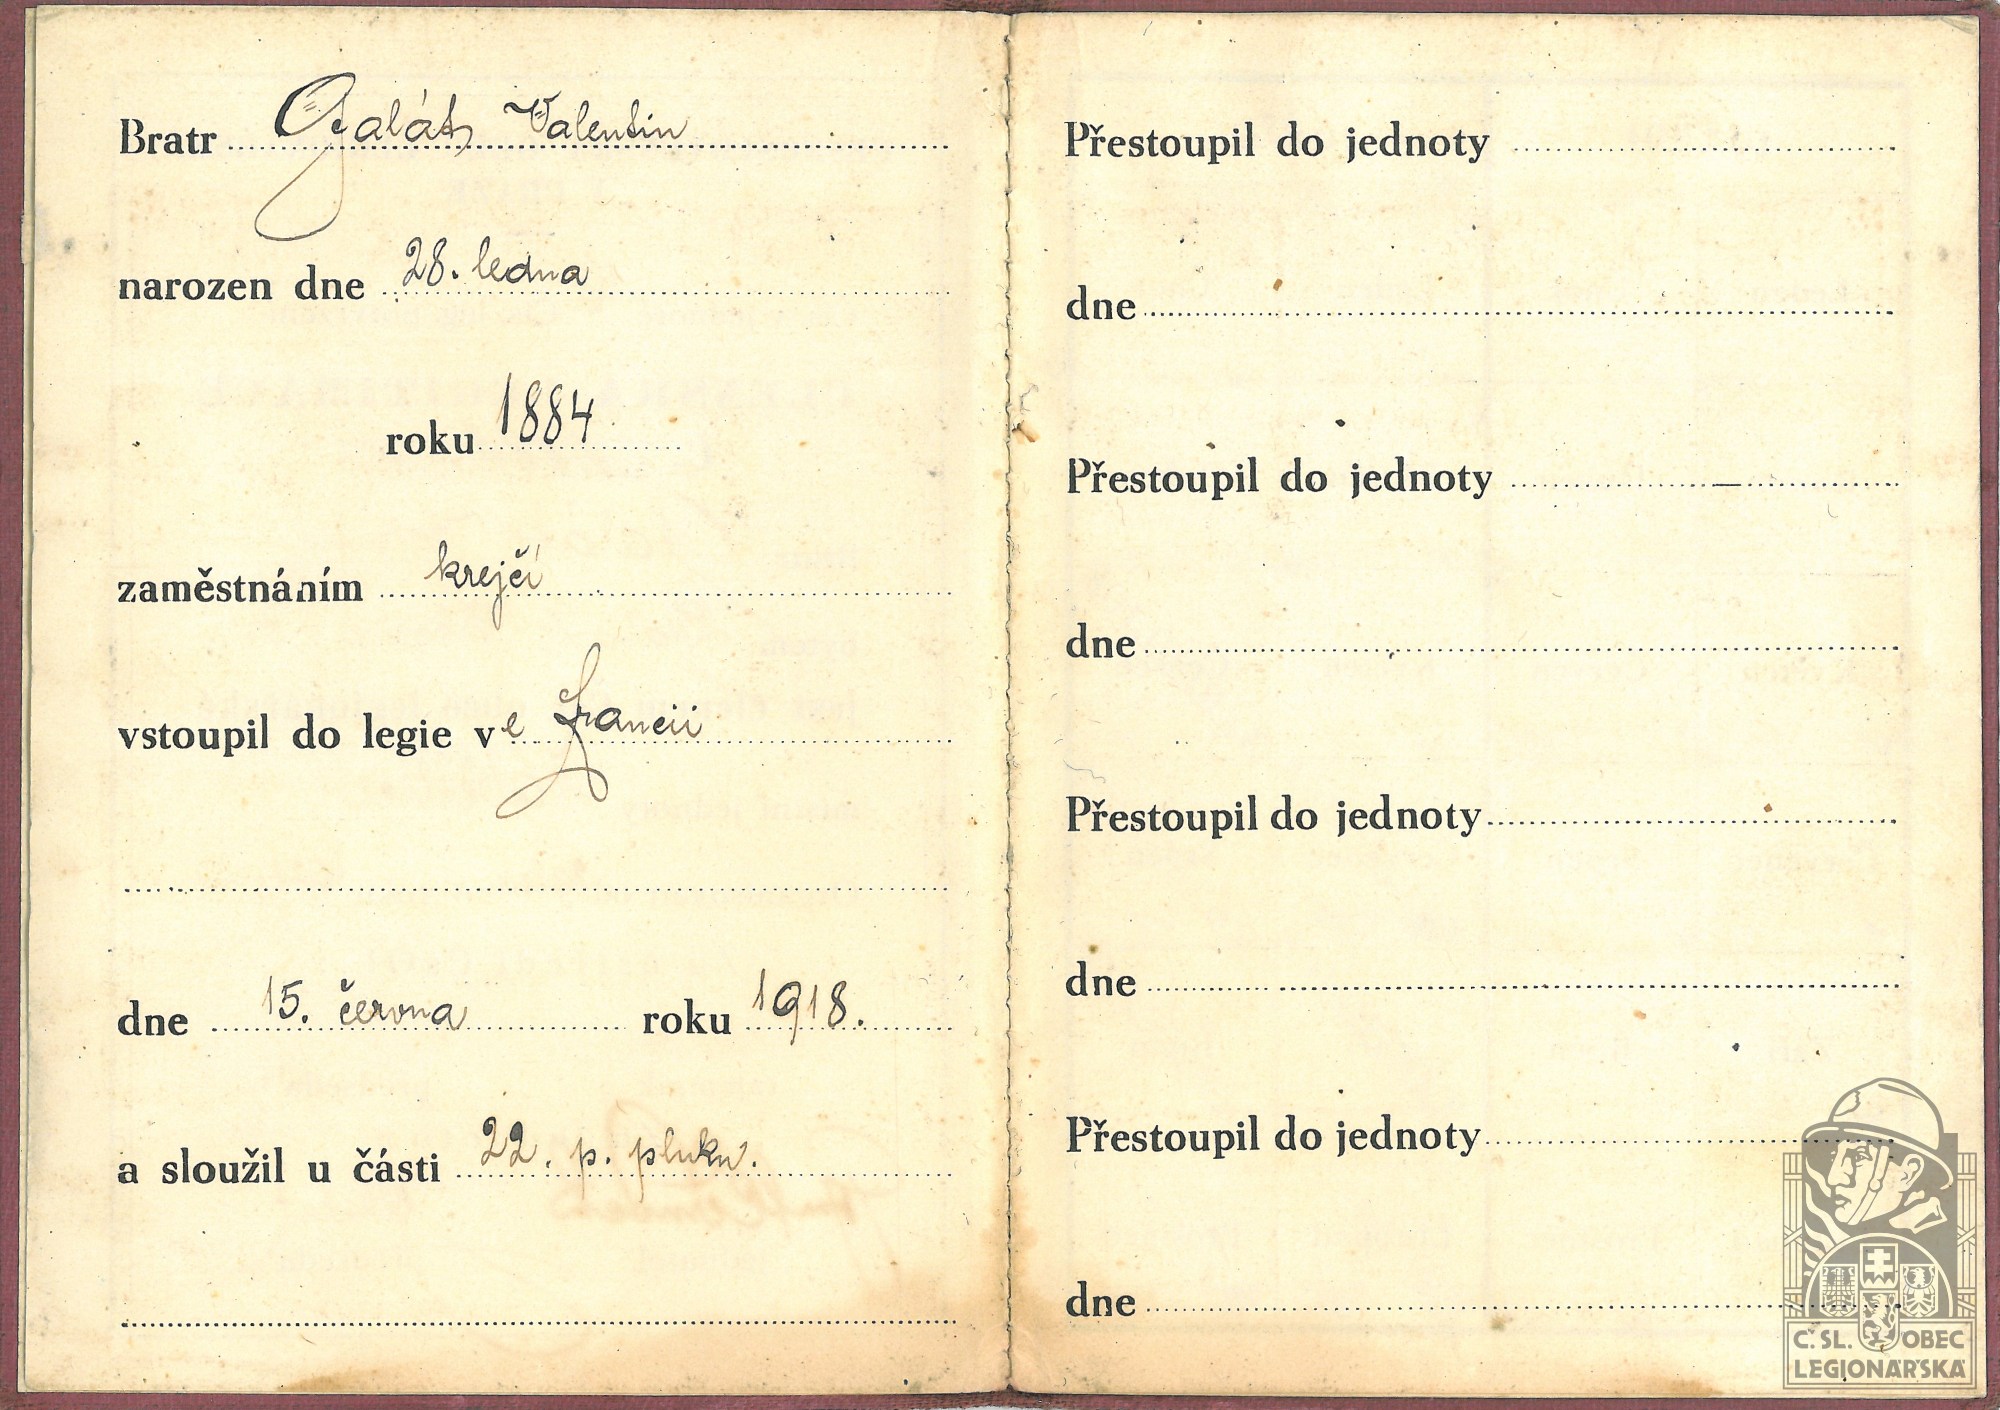 Bratr Galáts Valentin
narozen dne 28. ledna
roku 1884
zaměstnáním krejčí
vstoupil do legie ve Francii
dne 15. června roku 1918.
a sloužil u části 22. p. pluku.
Přestoupil do jednoty
dne
Přestoupil do jednoty
dne
Přestoupil do jednoty
dne
Přestoupil do jednoty
dne
Č. SL. OBEC
LEGIONÁŘSKÁ